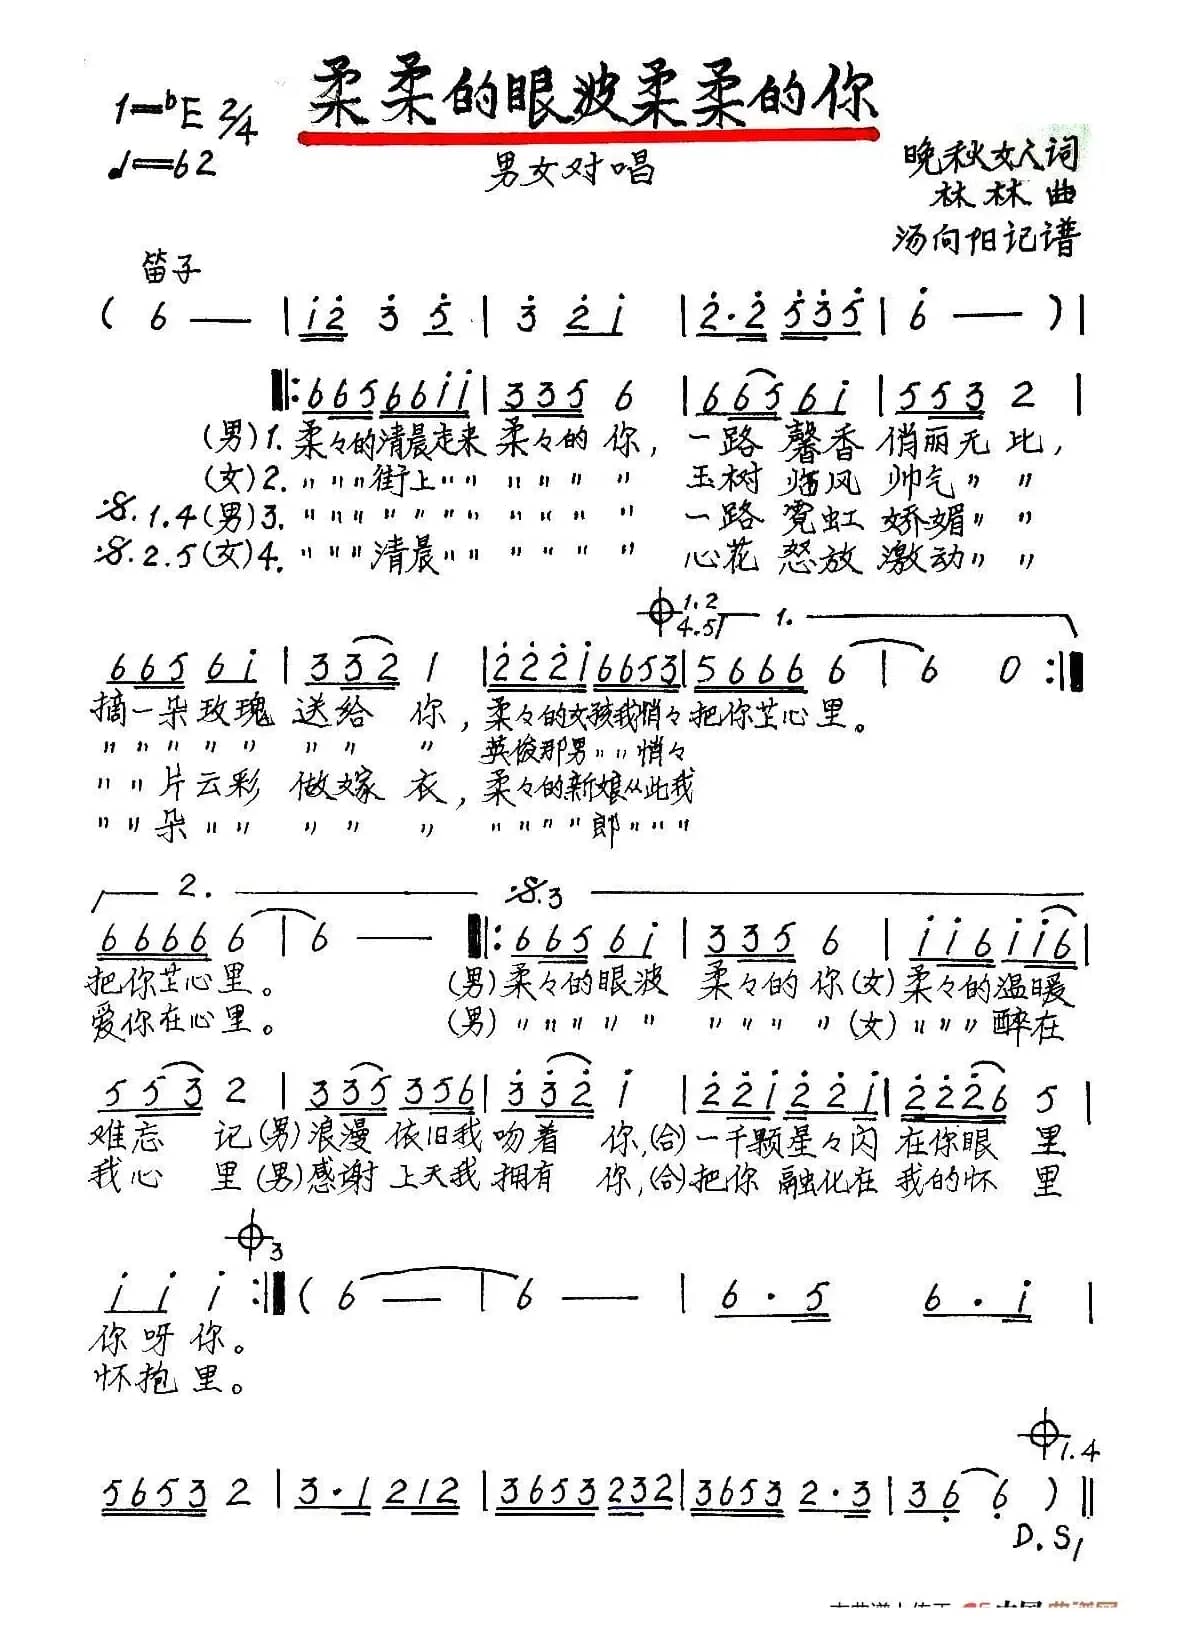 柔柔的眼波柔柔的你
1=♭E 2/4
♩=62
男女对唱
晚秋女人词
林林曲
汤向阳记谱
笛子
( 6 — | i̇2̇ 3̇ 5̇ | 3̇ 2̇ i̇ | 2̇·2̇ 5̇3̇5̇ | 6̇ — ) |
‖: 665 66i̇i̇ | 335 6 | 665 6i̇ | 553 2 |
(男)1. 柔々的清晨走来 柔々的 你, 一路 馨香 俏丽无 比,
(女)2. 〃〃〃街上〃〃 〃 〃 〃 〃 玉树 临风 帅气〃 〃
𝄋.1.4(男)3. 〃〃〃〃〃〃〃 〃〃〃 〃 一路 霓虹 娇媚〃 〃
𝄋.2.5(女)4. 〃〃〃清晨〃〃 〃〃〃 〃 心花 怒放 激动〃 〃
𝄌1.2 4.5 1.
665 6i̇ | 332 1 | 2̇2̇2̇i̇ 6653 | 5666 6 | 6 0 :‖
摘一朵玫瑰 送给 你, 柔々的女孩我悄々把你芷心里。
〃〃〃〃〃 〃〃 〃 英俊那男〃〃悄々
〃〃片云彩 做嫁 衣, 柔々的新娘从此我
〃〃朵〃〃 〃〃 〃 〃〃〃〃郎〃〃〃
2. 𝄋.3
6666 6 | 6 — ‖: 665 6i̇ | 335 6 | i̇i̇6 i̇i̇6 |
把你芷心里。 (男)柔々的眼波 柔々的 你(女)柔々的温暖
爱你在心里。 (男)〃〃〃〃〃 〃〃〃 〃(女)〃〃〃醉在
553 2 | 335 356 | 3̇3̇2̇ i̇ | 2̇2̇i̇ 2̇2̇i̇ | 2̇2̇2̇6 5 |
难忘 记(男)浪漫 依旧我 吻着 你,(合)一千颗星々闪 在你眼 里
我心 里(男)感谢 上天我 拥有 你,(合)把你 融化在 我的怀 里
𝄌3
i̇ i̇ i̇ :‖ ( 6 — | 6 — | 6·5 6·i̇ |
你呀你。
怀抱里。
𝄌1.4
5653 2 | 3·1 212 | 3653 232 | 3653 2·3 | 36̣ 6̣ ) ‖
D.S